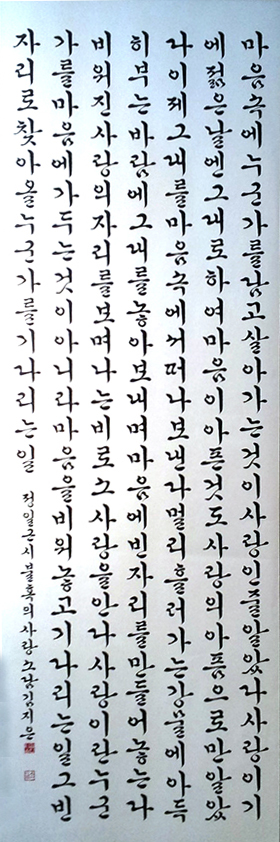 마음속에누군가를담고살아가는것이사랑인줄알았다사랑이기
에젊은날엔그대로하여마음이아픈것도사랑의아픔으로만알았
다이제그대를마음속에서떠나보낸다멀리흘러가는강물에아득
히부는바람에그대를놓아보내며마음에빈자리를만들어놓는다
비워진사랑의자리를보며나는비로소사랑을안다사랑이란누군
가를마음에가두는것이아니라마음을비워놓고기다리는일그빈
자리로찾아올누군가를기다리는일 정일근시불혹의사랑 김지은